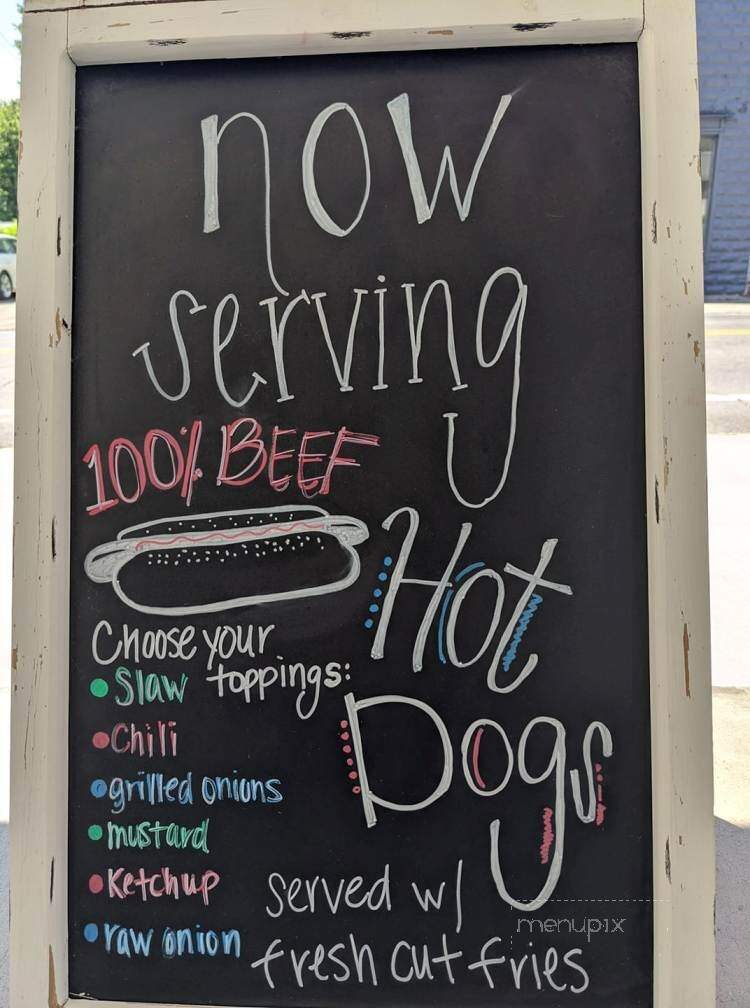 now
serving
100% BEEF
Hot
Dogs
Choose your
toppings:
• Slaw
• Chili
• grilled onions
• mustard
• Ketchup
• raw onion
served w/
fresh cut fries
menupix